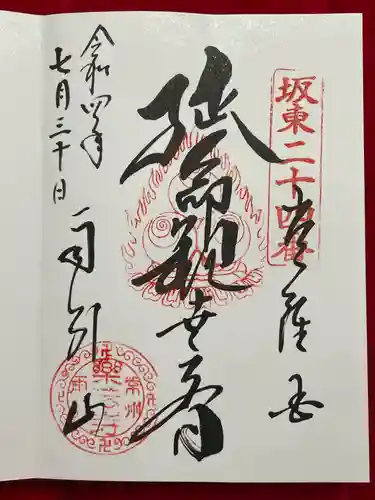 坂東二十四番
常陸国
延命観世音
雨引山
令和四年
七月三十日
常州